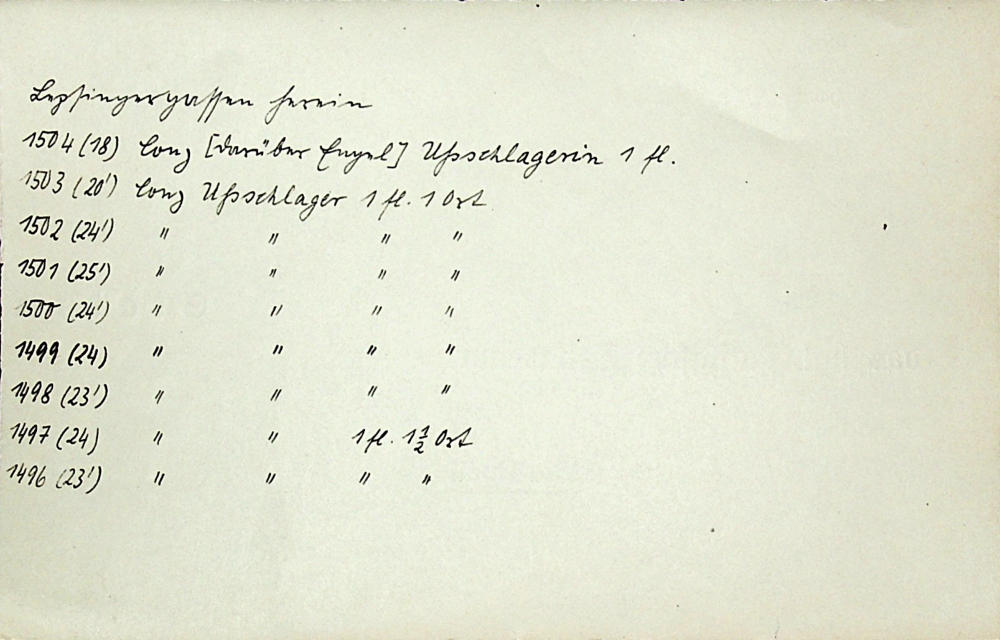 Lepsingergassen herein
1504 (18) Conz [darüber Engel] Ufsschlagerin 1 fl.
1503 (20') Conz Ufsschlager 1 fl. 1 Ort
1502 (24') " " " "
1501 (25') " " " "
1500 (24') " " " "
1499 (24) " " " "
1498 (23') " " " "
1497 (24) " " 1 fl. 1½ Ort
1496 (23') " " " "